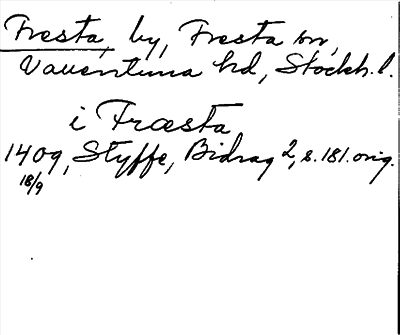 Fresta, by, Fresta sn,
Vallentuna hd, Stockh. l.
i Fræsta
1409, Styffe, Bidrag 2, s. 181. orig.
18/9